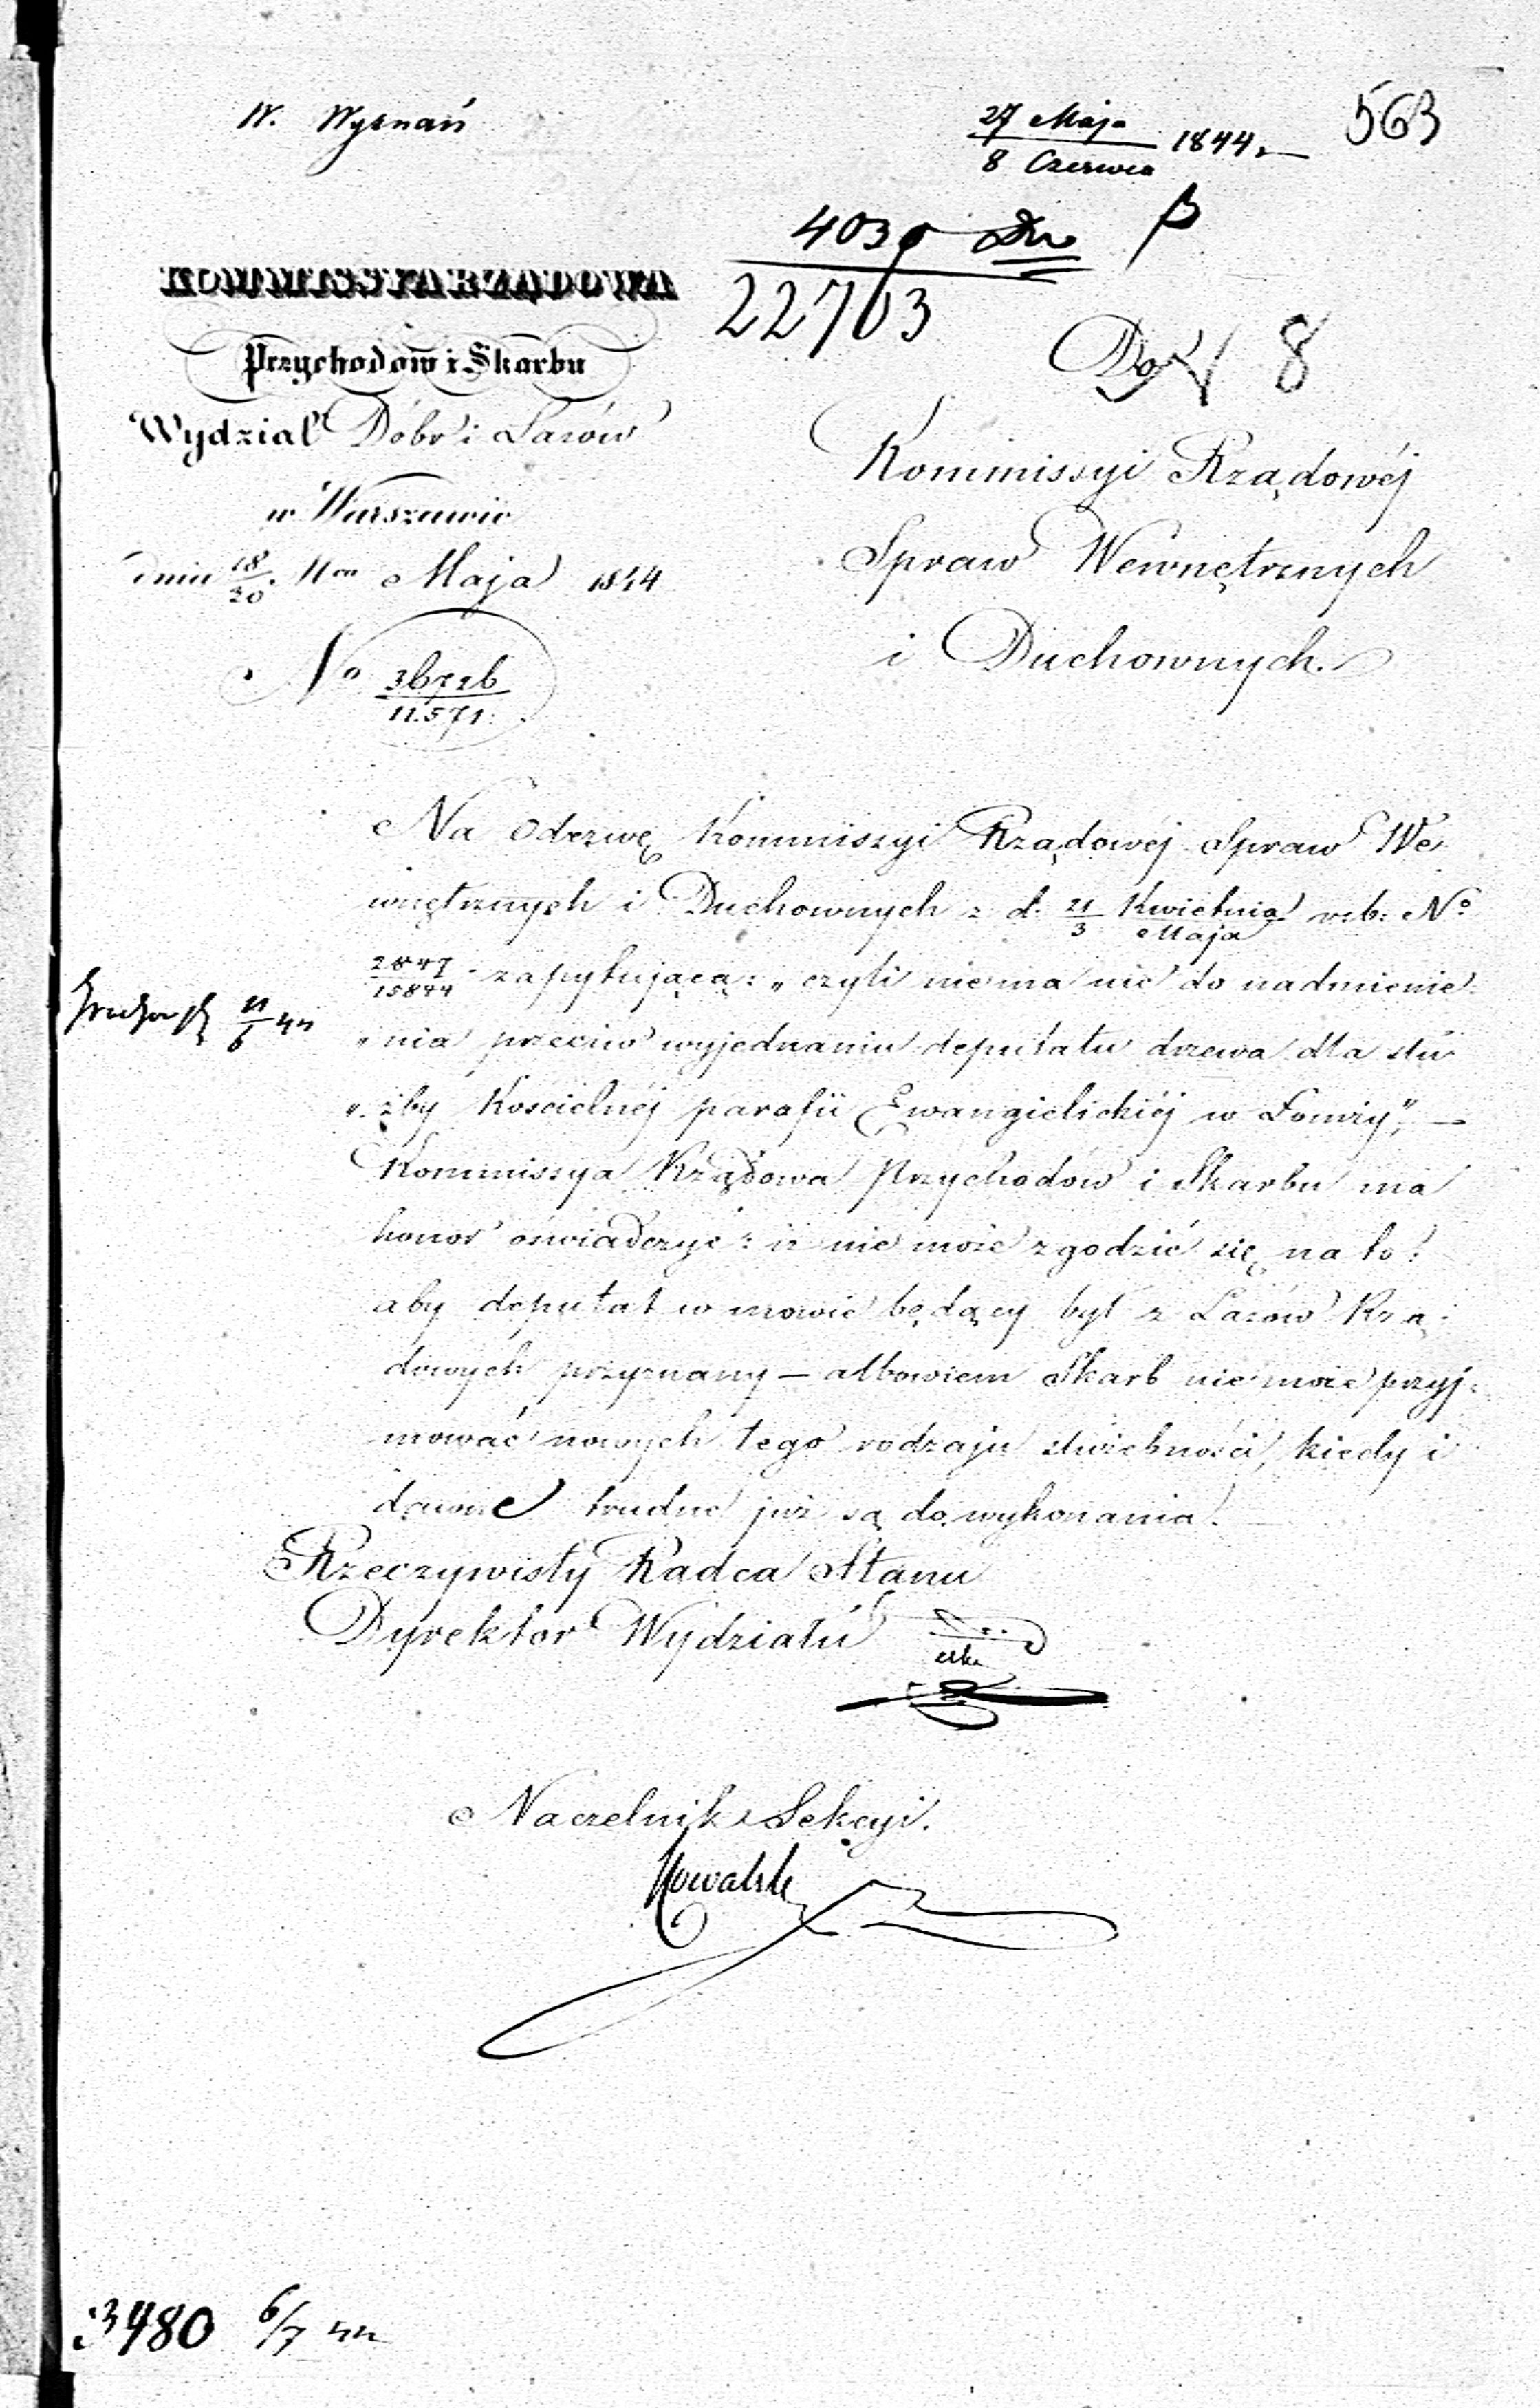 W. Wyznań
27 Maja
8 Czerwca 1844.
563
22763
Do
8
KOMMISSYA RZĄDOWA
Przychodów i Skarbu
Wydział Dóbr i Lasów
w Warszawie
dnia 18/30 Maja 1844
No
11.571.
Kommissyi Rządowéj
Spraw Wewnętrznych
i Duchownych.
Na Odezwę Kommissyi Rządowéj Spraw We-
wnętrznych i Duchownych z d. 21 Kwietnia / 3 Maja r. b. No
2847/15844 zapytującą: „czyli niema nic do nadmienie-
„nia przeciw wyjednaniu deputatu drzewa dla słu-
„żby Kościelnéj parafii Ewangielickiéj w Łomży", —
Kommissya Rządowa Przychodów i Skarbu ma
honor oświadczyć: iż nie może zgodzić się na to!
aby deputat w mowie będący był z Lasów Rzą-
dowych przyznany — albowiem Skarb nie może przyj-
mować nowych tego rodzaju służebności, kiedy i
dawne trudne już są do wykonania.
Rzeczywisty Radca Stanu
Dyrektor Wydziału
Naczelnik Sekcyi.
Kowalski
3480 6/7 44